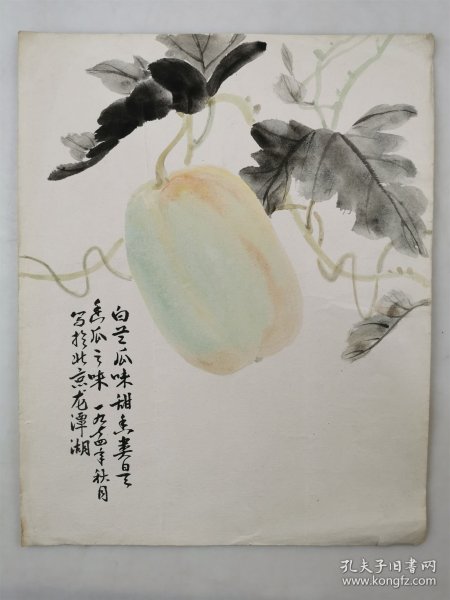 白兰瓜味甜香类白兰
香瓜之味 一九七四年秋月
写於北京龙潭湖
孔夫子旧书网
www.kongfz.com